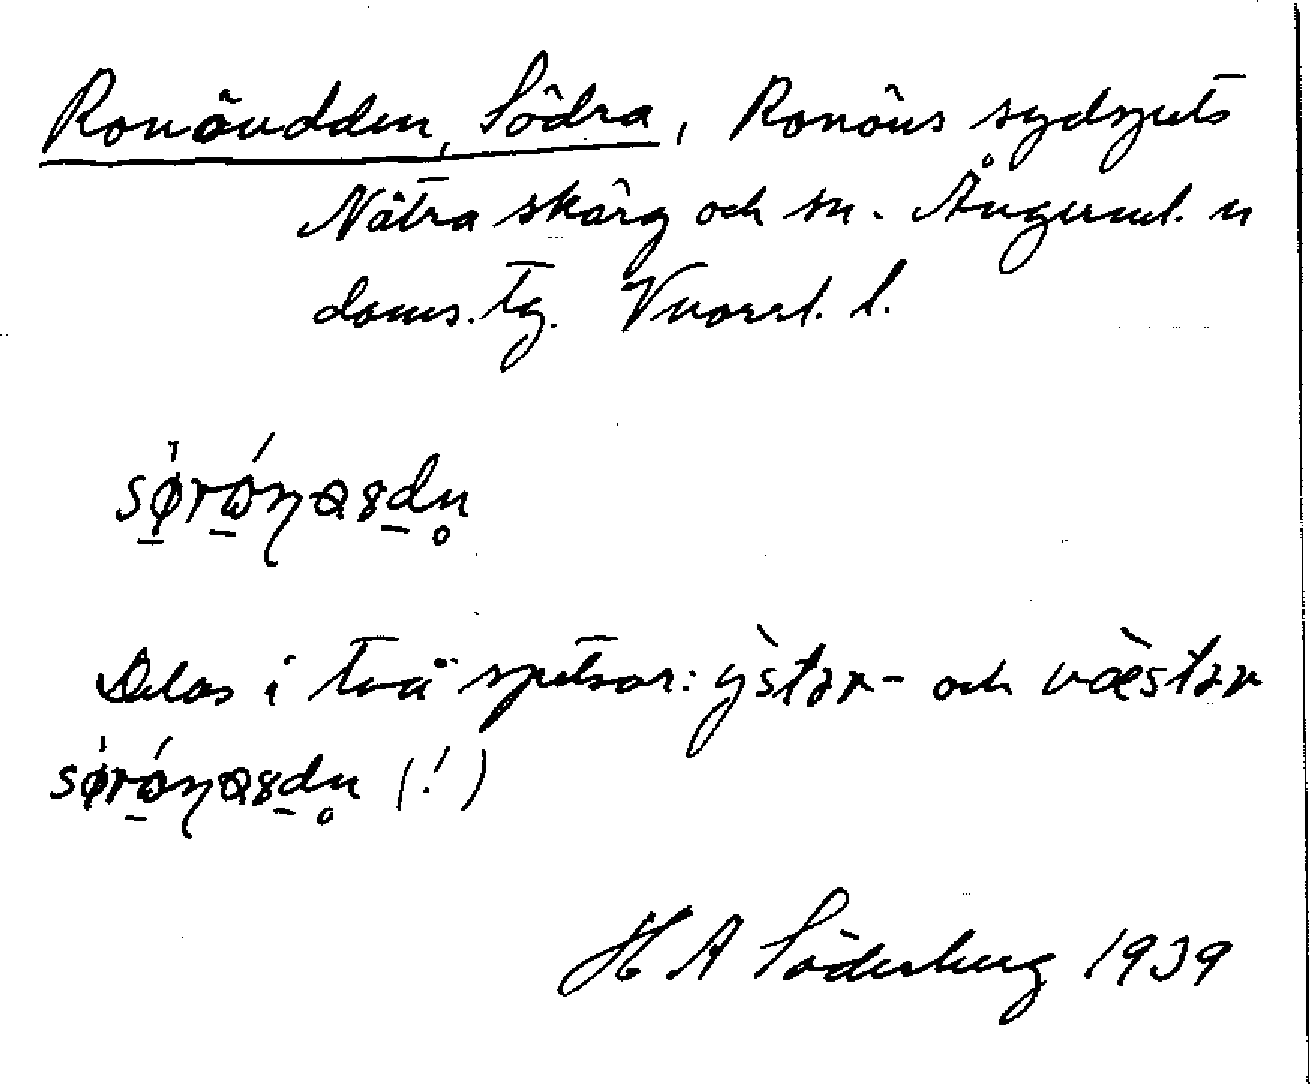 Ronöudden, Södra, Ronöns sydspets
Nätra skärg och sn. Ångerml. n
doms. tg. Vnorrl. l.
Delas i två spetsar: ỳstər- och væ̀stər
(!)
H A Söderberg 1939